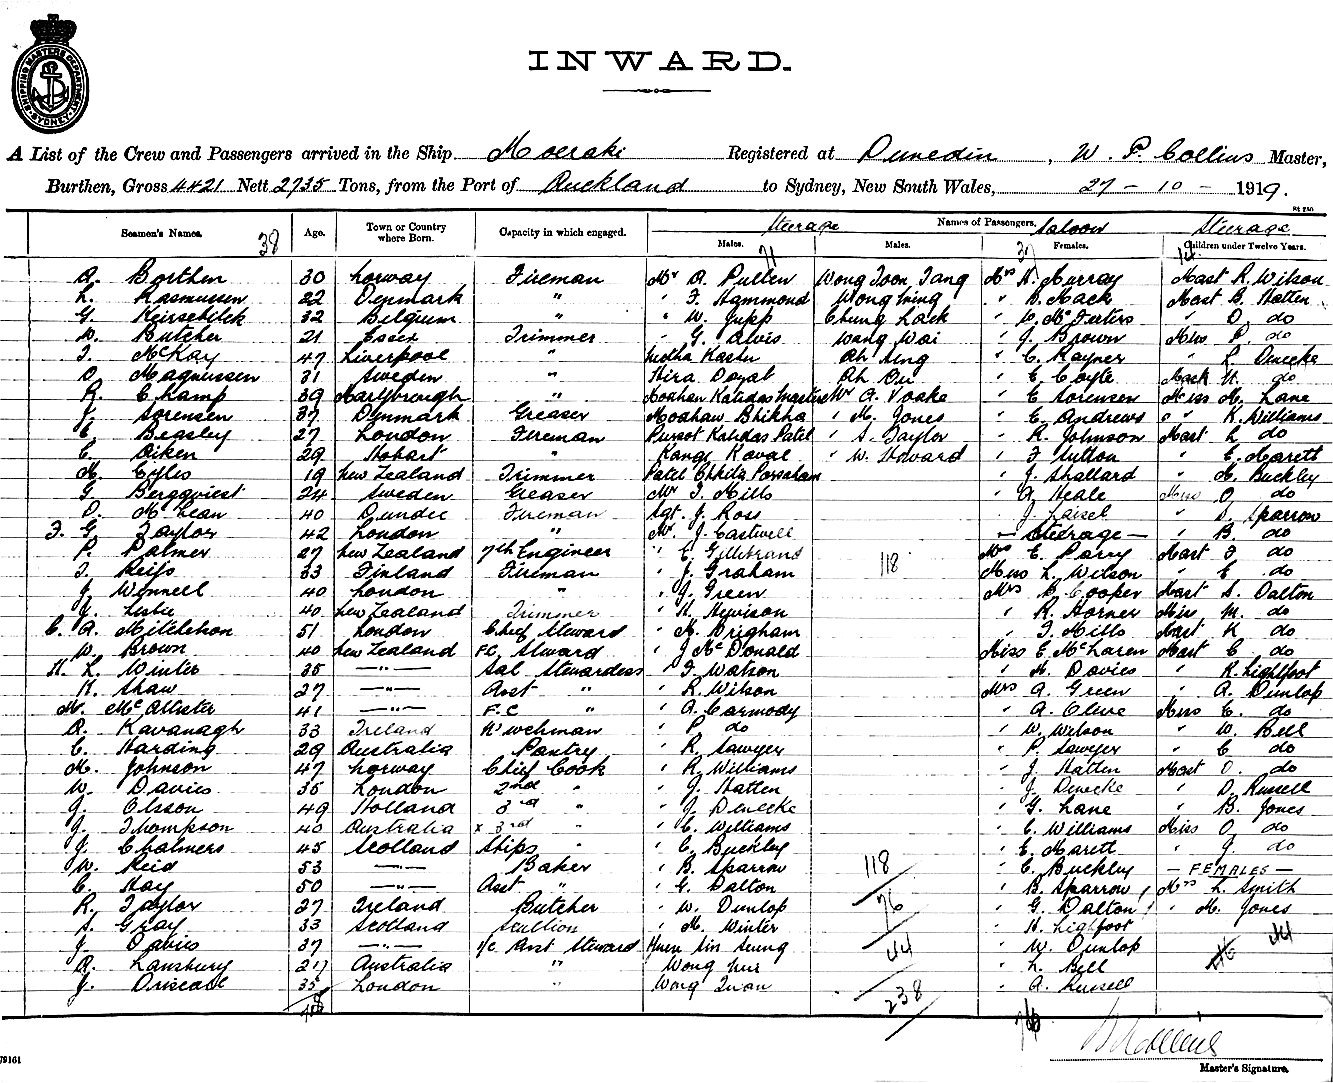 SHIPPING MASTERS DEPARTMENT SYDNEY
INWARD.
A List of the Crew and Passengers arrived in the Ship Moeraki Registered at Dunedin, W. P. Collins Master,
Burthen, Gross 4421 Nett 2735 Tons, from the Port of Auckland to Sydney, New South Wales, 27 - 10 - 1919.
Steerage Names of Passengers. Saloon Steerage
Seamen's Names. 38 Age. Town or Country where Born. Capacity in which engaged. Males. 71 Males. 37 Females. 14 Children under Twelve Years.
30 Norway Fireman Mr A. Pullen Wong Toon Tang Mrs H. Murray Mast R. Wilson
L. Rasmussen 22 Denmark " " F. Hammond Wong Ming " B. Mack Mast B. Hatten
G. 32 Belgium " " W. Jupp Chung Lack " " D. do
D. Butcher 21 Essex Trimmer " G. Alvis Wang Wai " J. Brown Miss P. do
T. McKay 47 Liverpool " Ah Sing " C. Rayner " L. Denecke
O. Magnussen 31 Sweden " Hira Dayal " E. Coyle do
R. Champ 39 Maryborough " Mr A. Voake " E Sorensen Miss M. Lane
J. Sorensen 37 Denmark Greaser Bhikha " M. Jones " E. Andrews " K. Williams
E Beasley 27 London Fireman Kalidas Patel " S. Taylor " R. Johnson Mast L do
E. Aiken 29 Hobart " " W. Howard " F Hutton " E. Marett
M. Eyles 19 New Zealand Trimmer Patel " J. Shallard " M. Buckley
G. Bergqviest 24 Sweden Greaser Mr T. Mills " A. Heale Miss O do
D. McLean 40 Dundee Fireman Sgt. J. Ross " J. " D. Sparrow
F. G. Taylor 42 London " Mr. J. Castwell — Steerage — " B. do
P. Palmer 27 New Zealand 7th Engineer " E. Gillebrand 118 Mrs E. Parry Mast F do
T. Reiss 33 Finland Fireman " J. Graham Miss L. Wilson " E do
J Winnell 40 London " " J. Green Mrs B. Cooper Mast S. Dalton
J. Leslie 40 New Zealand Trimmer " H. Hewison " R. Horner Miss M. do
C. A. Mitchelson 51 London Chief Steward " M. Brigham " F. Mills Mast K do
W. Brown 40 New Zealand F.C. Steward " J McDonald Miss E. McLaren Mast E do
H. L. Winter 35 — " — Sal Stewardess " F Watson " M. Davies " R. Lightfoot
K. Shaw 27 — " — Asst " " R. Wilson Mrs A. Green " A. Dunlop
M. McAllister 41 — " — F.C " " A. Carmody " A. Clive Miss E. do
R. Kavanagh 33 Ireland N'wchman " P do " W. Wilson " W. Bell
C. Harding 29 Australia Pantry " R. Sawyer " P. Sawyer " E do
M. Johnson 47 Norway Chief Cook " R Williams " J. Hatten Mast O. do
W. Davies 35 London 2nd " " J. Hatten " J. Denecke " D. Russell
J. Olsson 49 Holland 3rd " " J. Denecke " G. Lane " B. Jones
J. Thompson 40 Australia x 3rd " " E. Williams " E. Williams Miss O do
J. Chalmers 45 Scotland Ships " " E. Buckley " E. Marett " J. do
W. Reid 53 — " — Baker " B. Sparrow 118 " E. Buckley — FEMALES —
C. Hay 50 — " — Asst " " G. Dalton " B. Sparrow Mrs L. Smith
R. Taylor 27 Ireland Butcher " W. Dunlop 76 " G. Dalton " M. Jones
S. Gray 33 Scotland Scullion " M. Winter " R. Lightfoot
J. Davies 37 — " — F/c Asst Steward Sin Seung 44 " W. Dunlop 44
R. Lansbury 27 Australia " Wong " L. Bell
J. Driscoll 35 London " Wong Quan 238 " A. Russell
76
79161
Master's Signature.